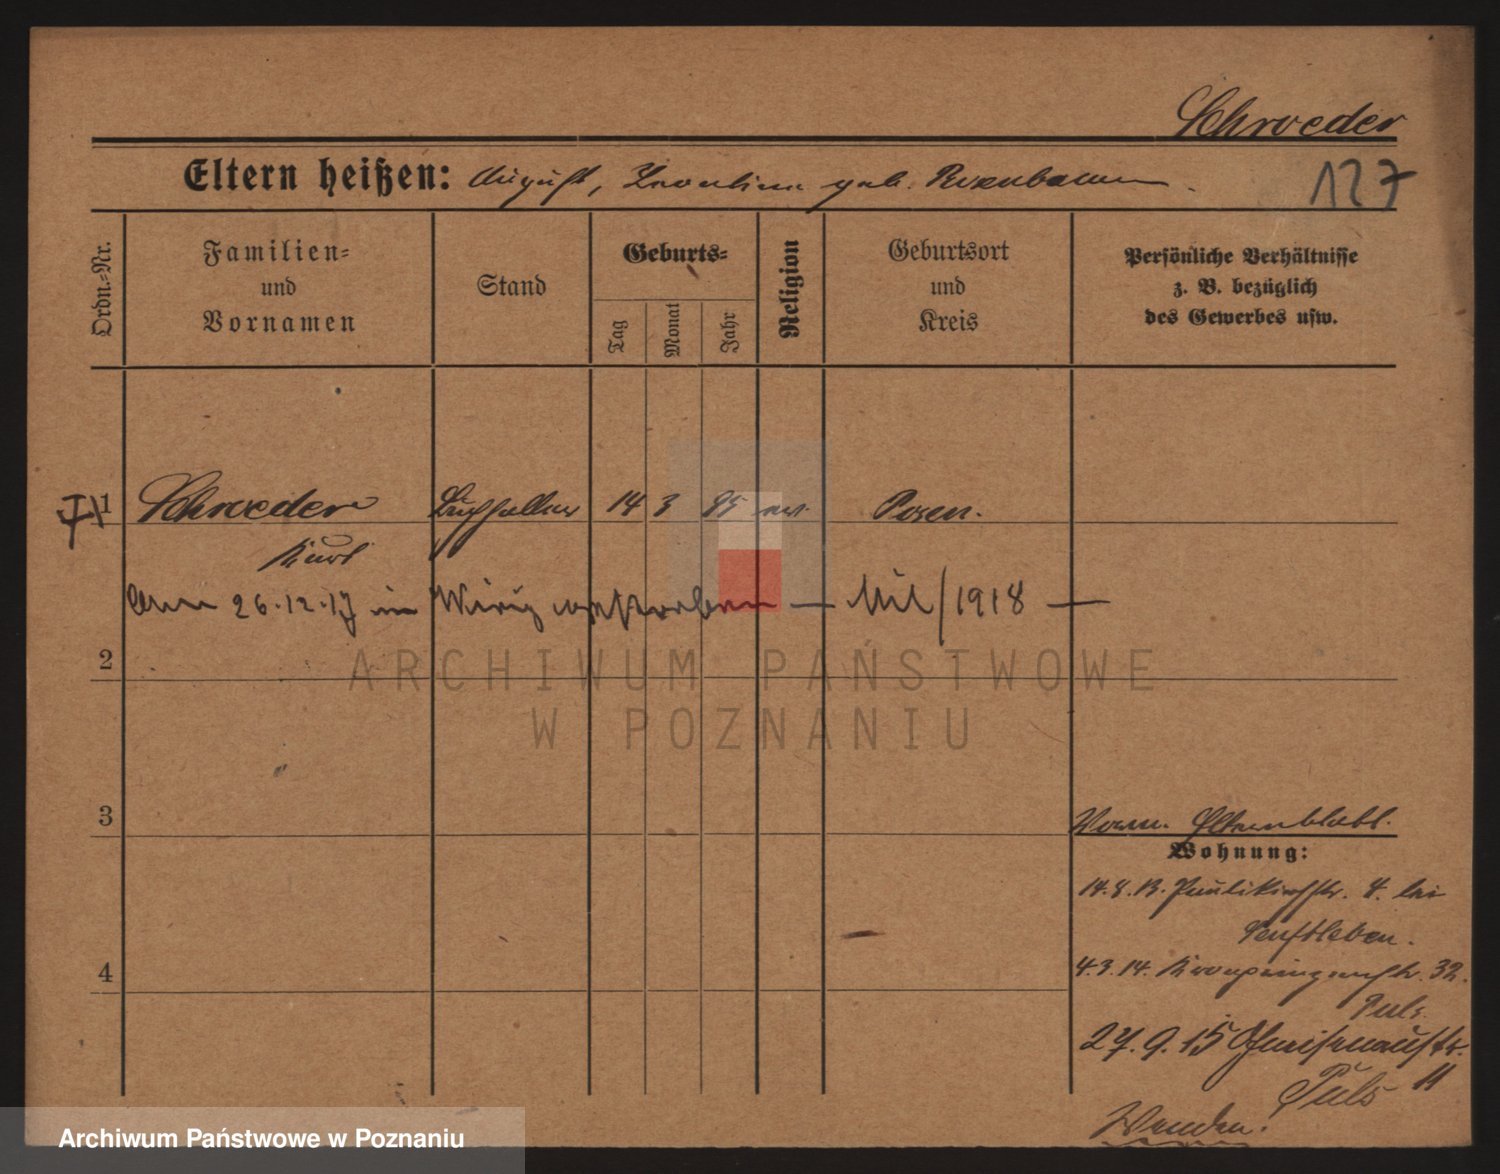 Schroeder
Eltern heißen: August, geb. Rosenbaum.
127
Ordn.-Nr.
Familien-
und
Vornamen
Stand
Geburts-
Tag
Monat
Jahr
Religion
Geburtsort
und
Kreis
Persönliche Verhältnisse
z. B. bezüglich
des Gewerbes usw.
1 Schroeder Buchhalter 14 3 95 ev. Posen.
Kurt
Am 26.12.17 in verstorben — Mil/1918 —
2
ARCHIWUM PAŃSTWOWE
W POZNANIU
3
Vorm. Elternblatt.
Wohnung:
14.8.13. Paulikirchstr. 4. bei
Senftleben.
4
4.3.14. Kronprinzenstr. 32.
Puls.
27.9.15 Gneisenaustr.
11
Puls
Wenden!
Archiwum Państwowe w Poznaniu